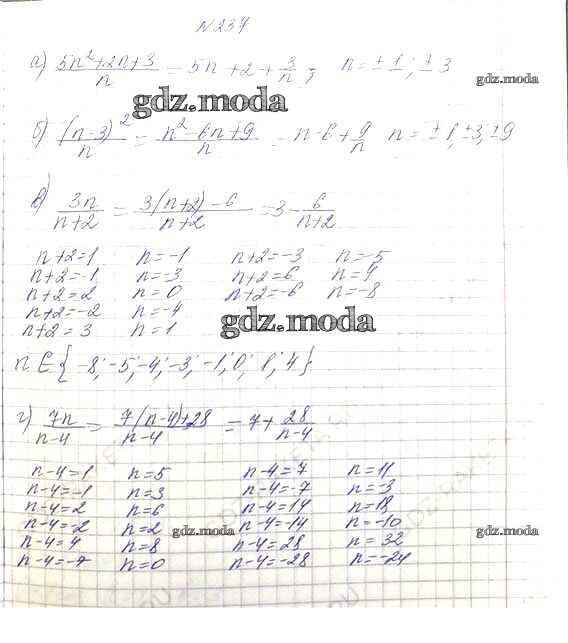 № 237
а) (5n²+2n+3)/n = 5n+2+3/n; n=±1; ±3
gdz.moda
gdz.moda
б) (n-3)²/n = (n²-6n+9)/n = n-6+9/n n=±1,±3,±9
в) 3n/(n+2) = (3(n+2)-6)/(n+2) = 3-6/(n+2)
n+2=1 n=-1 n+2=-3 n=-5
n+2=-1 n=-3 n+2=6 n=4
n+2=2 n=0 n+2=-6 n=-8
n+2=-2 n=-4
n+2=3 n=1
gdz.moda
n∈{-8;-5;-4;-3;-1;0;1;4}
г) 7n/(n-4) = (7(n-4)+28)/(n-4) = 7+28/(n-4)
n-4=1 n=5 n-4=7 n=11
n-4=-1 n=3 n-4=-7 n=-3
n-4=2 n=6 n-4=14 n=18
n-4=-2 n=2 n-4=-14 n=-10
gdz.moda
gdz.moda
n-4=4 n=8 n-4=28 n=32
n-4=-7 n=0 n-4=-28 n=-24